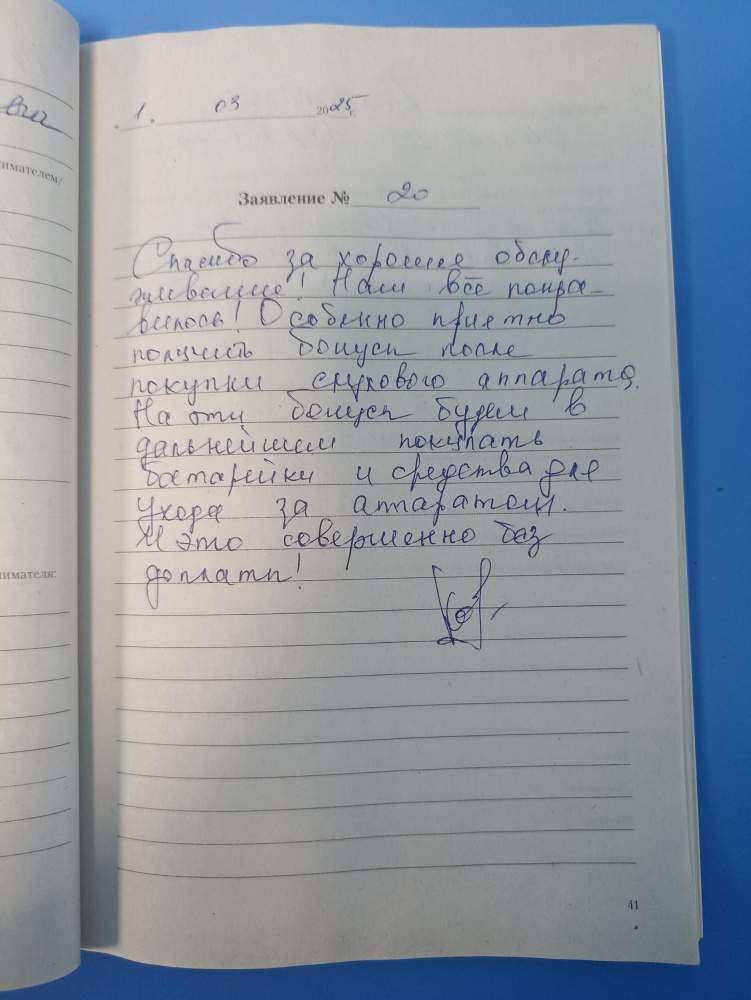 вич
нимателем/
нимателя:
1. 03 2025 г.
Заявление № 20
Спасибо за хорошее обслу-
живание! Нам всё понра-
вилось! Особенно приятно
получить бонусы после
покупки слухового аппарата.
На эти бонусы будем в
дальнейшем покупать
батарейки и средства для
ухода за аппаратом.
И это совершенно без
доплаты!
41